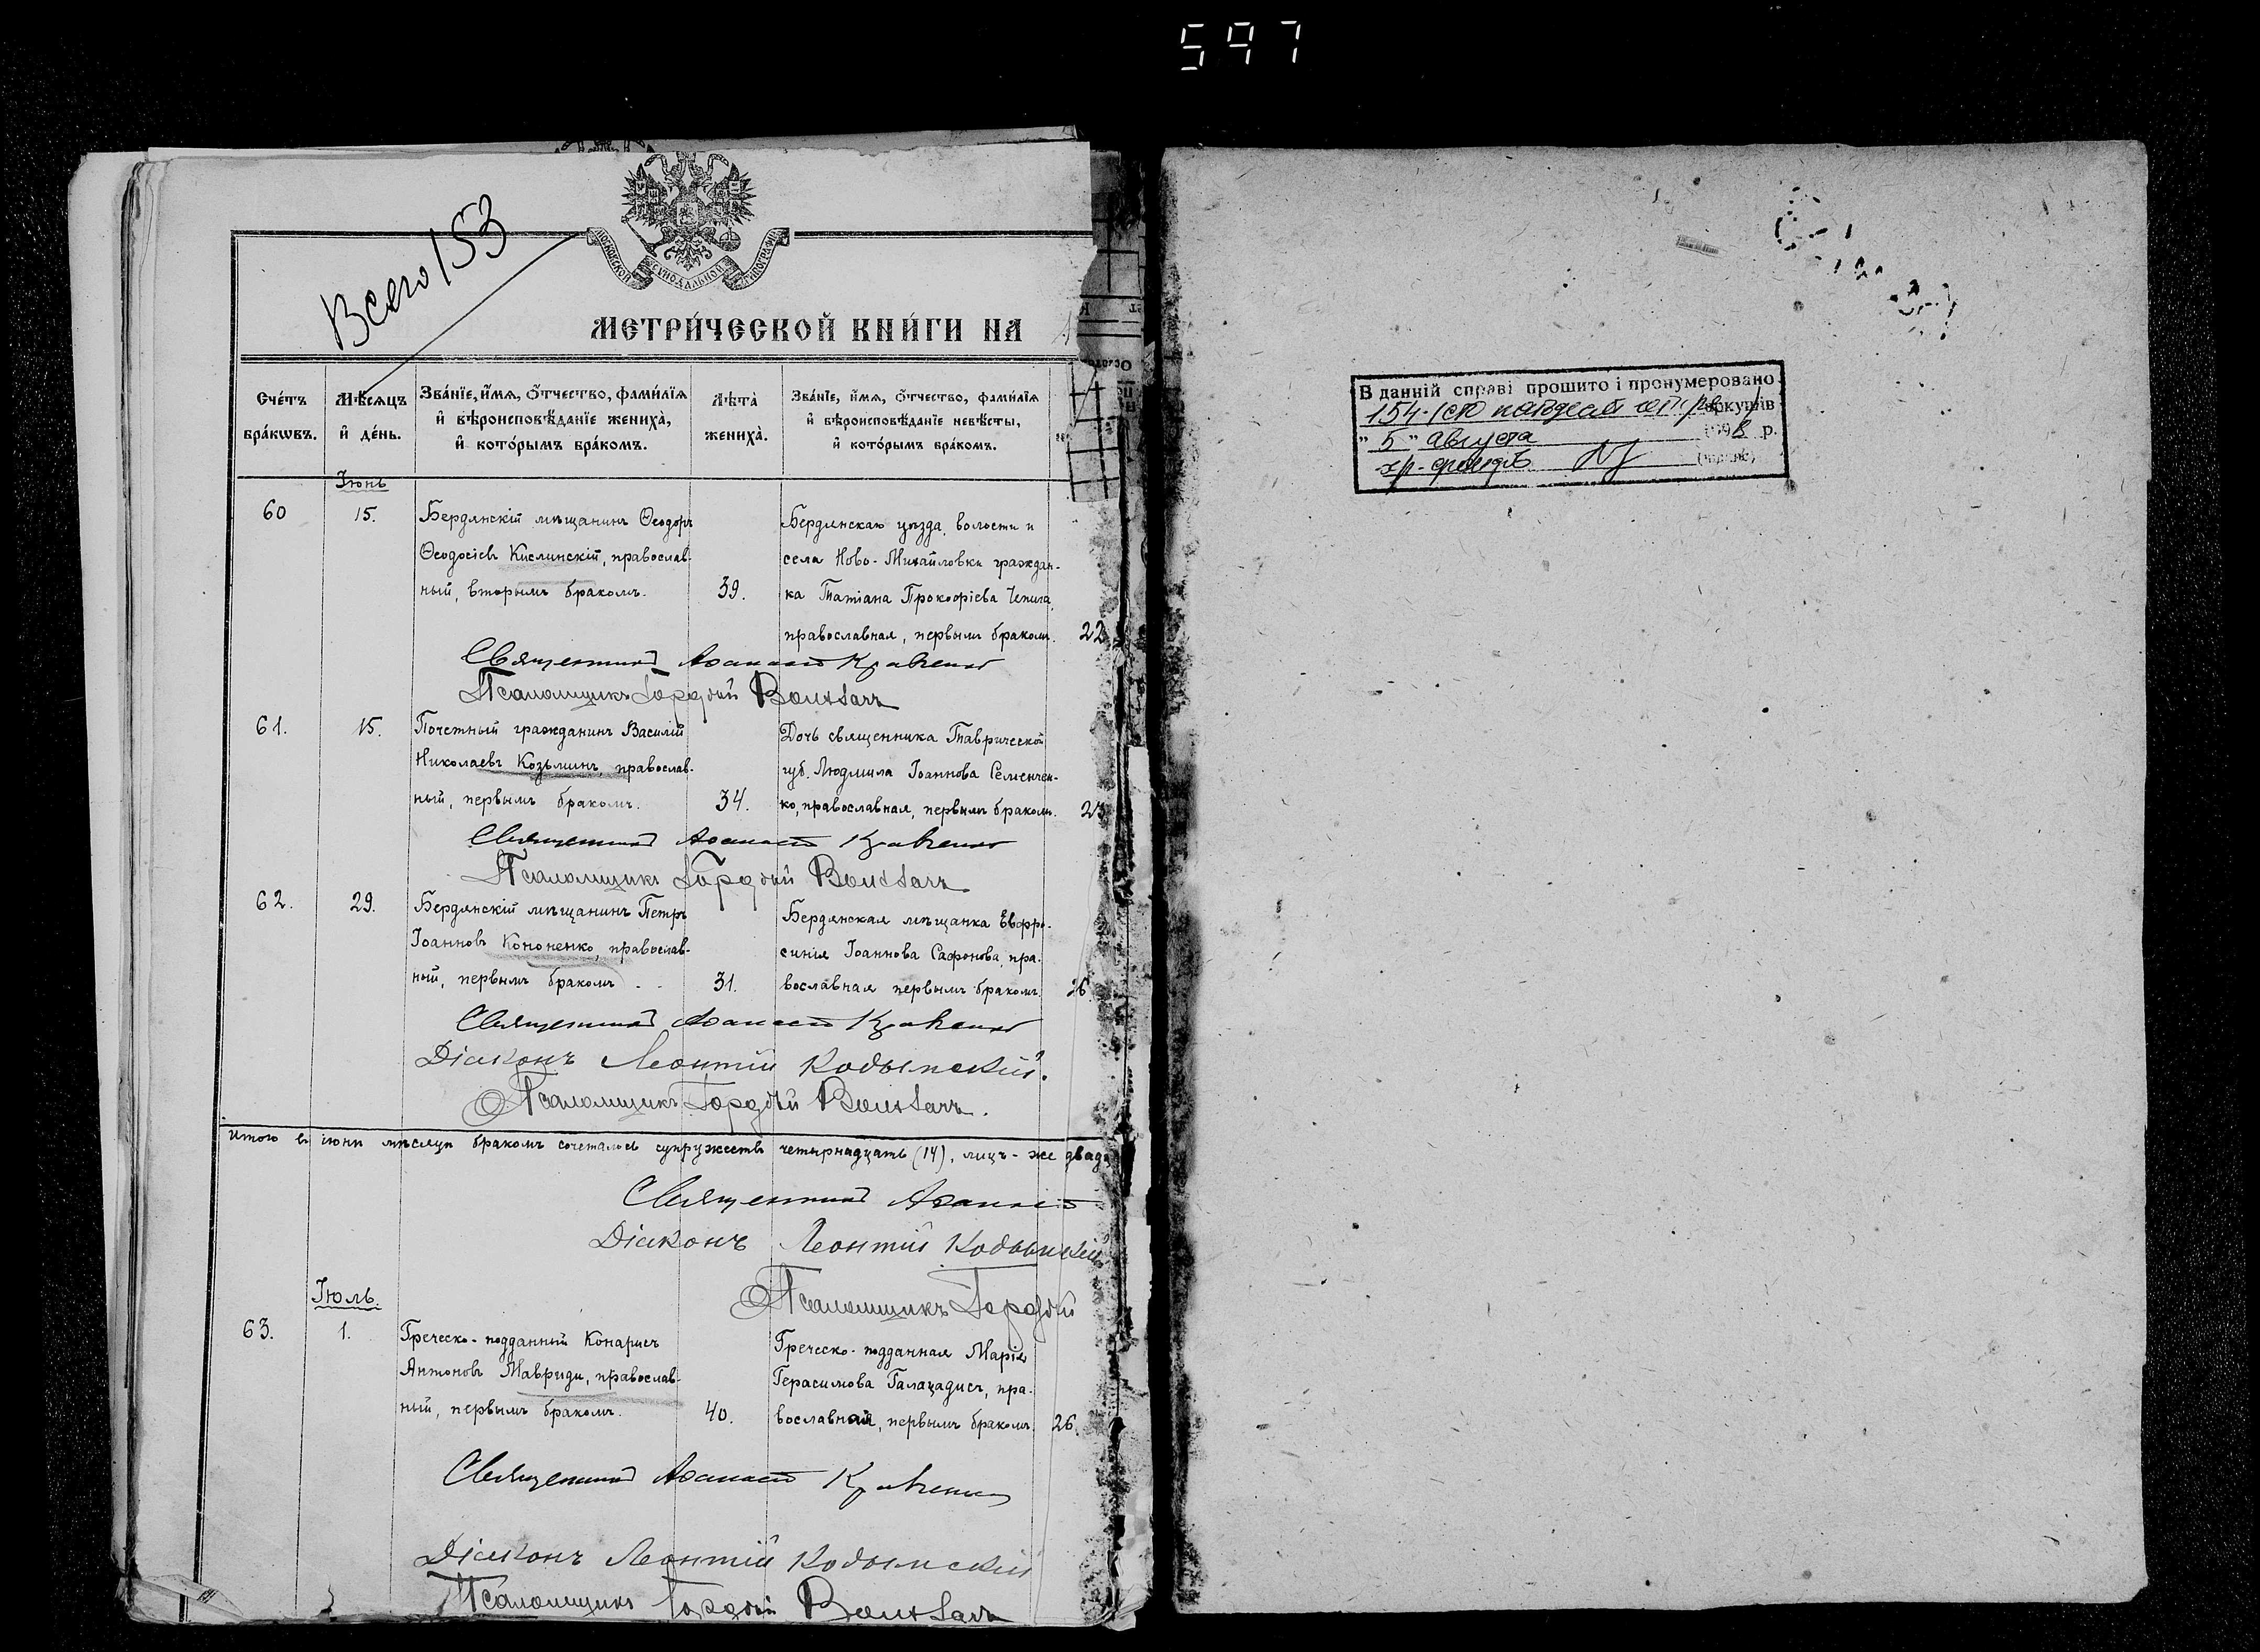 597
Всего 153
МОСКОВСКОЙ СУНОДАЛЬНОЙ ТИПОГРАФІИ
МЕТРИ́ЧЕСКОЙ КНИ́ГИ НА
Сче́тъ бра́кωвъ.
Мѣ́сяцъ и҆ де́нь.
Зва́нїе, и҆́мя, ѻ҆́тчество, фами́лїя и҆ вѣроисповѣ́данїе жениха̀, и҆ кото́рымъ бра́комъ.
Лѣта̀ жениха̀.
Зва́нїе, и҆́мя, ѻ҆́тчество, фами́лїя и҆ вѣроисповѣ́данїе невѣ́сты, и҆ кото́рымъ бра́комъ.
Іюнь
60
15.
Бердянскій мѣщанинъ Ѳеодоръ
Ѳеодосіевъ Кислинскій, православ-
ный, вторымъ бракомъ.
39.
Бердянскаго уѣзда, волости и
села Ново-Михайловки граждан-
ка Татіана Прокофіева
православная, первымъ бракомъ.
22
Священникъ Аѳанасій Кравченко
Псаломщикъ Гордѣй
61.
15.
Почетный гражданинъ Василій
Николаевъ Козьминъ, православ-
ный, первымъ бракомъ.
34.
Дочь священника Таврической
губ. Людмила Іоаннова Семенчен-
ко, православная, первымъ бракомъ.
Священникъ Аѳанасій Кравченко
Псаломщикъ Гордѣй
62.
29.
Бердянскій мѣщанинъ Петръ
Іоанновъ Кононенко, православ-
ный, первымъ бракомъ
31.
Бердянская мѣщанка Евфро-
синія Іоаннова Сафонова, пра-
вославная первымъ бракомъ.
26.
Священникъ Аѳанасій Кравченко
Діаконъ Леонтій Кодымскій.
Псаломщикъ Гордѣй
Итого въ іюнѣ мѣсяцѣ бракомъ сочеталось супружествъ четырнадцать (14), лицъ-же двад
Священникъ Аѳанасій
Діаконъ Леонтій Кодымскій
Псаломщикъ Гордѣй
Іюль.
63.
1.
Греческо-подданный Конарисъ
Антоновъ Мавриди, православ-
ный, первымъ бракомъ.
40.
Греческо-подданная Марія
Герасимова Галацадисъ, пра-
вославная, первымъ бракомъ.
26.
Священникъ Аѳанасій Кравченко
Діаконъ Леонтій Кодымскій
Псаломщикъ Гордѣй
В данній справі прошито і пронумеровано
154-(сто аркушів
" 5 " августа 1998 р.
хр. фондів